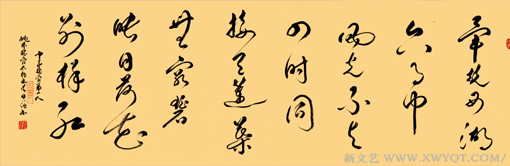 毕竟西湖
六月中
风光不与
四时同
接天莲叶
无穷碧
映日荷花
别样红
新文艺 WWW.XWYQT.COM